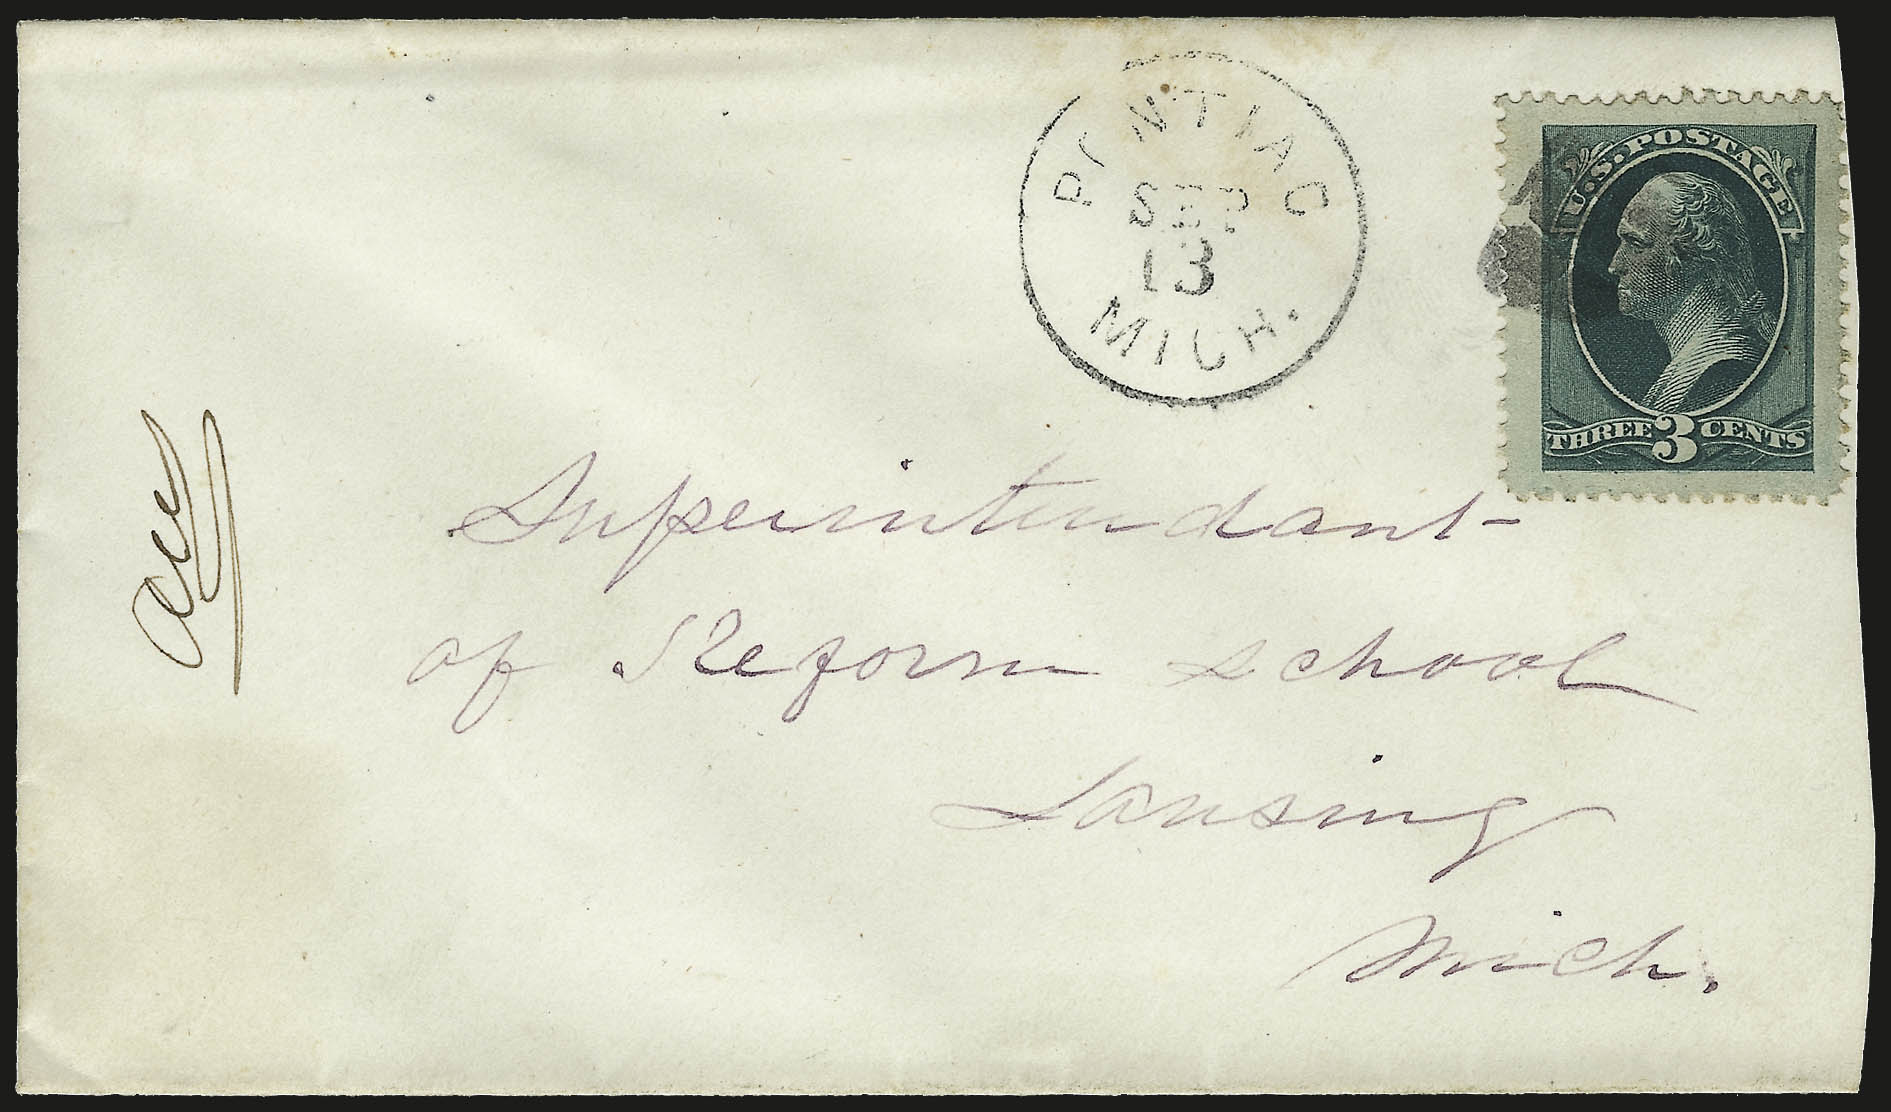 PONTIAC
SEP
13
MICH.
U.S. POSTAGE
THREE 3 CENTS
Superintendant
of Reform school
Lansing
Mich.